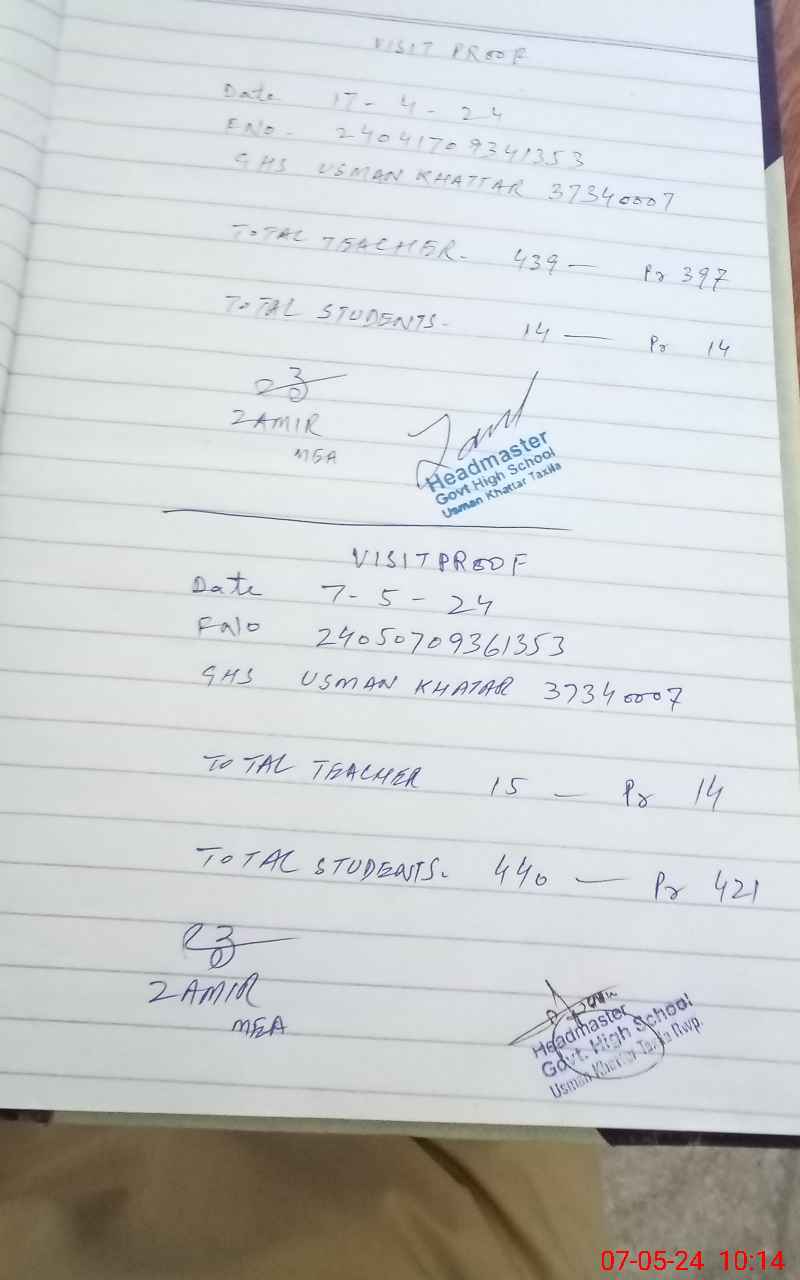 VISIT PROOF
Date 17-4-24
FNO. 24041709341353
GHS USMAN KHATTAR 37340007
TOTAL TEACHER. 439 — Pr 397
TOTAL STUDENTS. 14 — Pr 14
ZAMIR
MEA
Headmaster
Govt High School
Usman Khattar Taxila
VISIT PROOF
Date 7-5-24
FNO 24050709361353
GHS USMAN KHATAR 37340007
TOTAL TEACHER 15 — Pr 14
TOTAL STUDENTS. 440 — Pr 421
ZAMIR
MEA
Headmaster
Govt. High School
Usman Khattar Taxila Rwp.
07-05-24 10:14